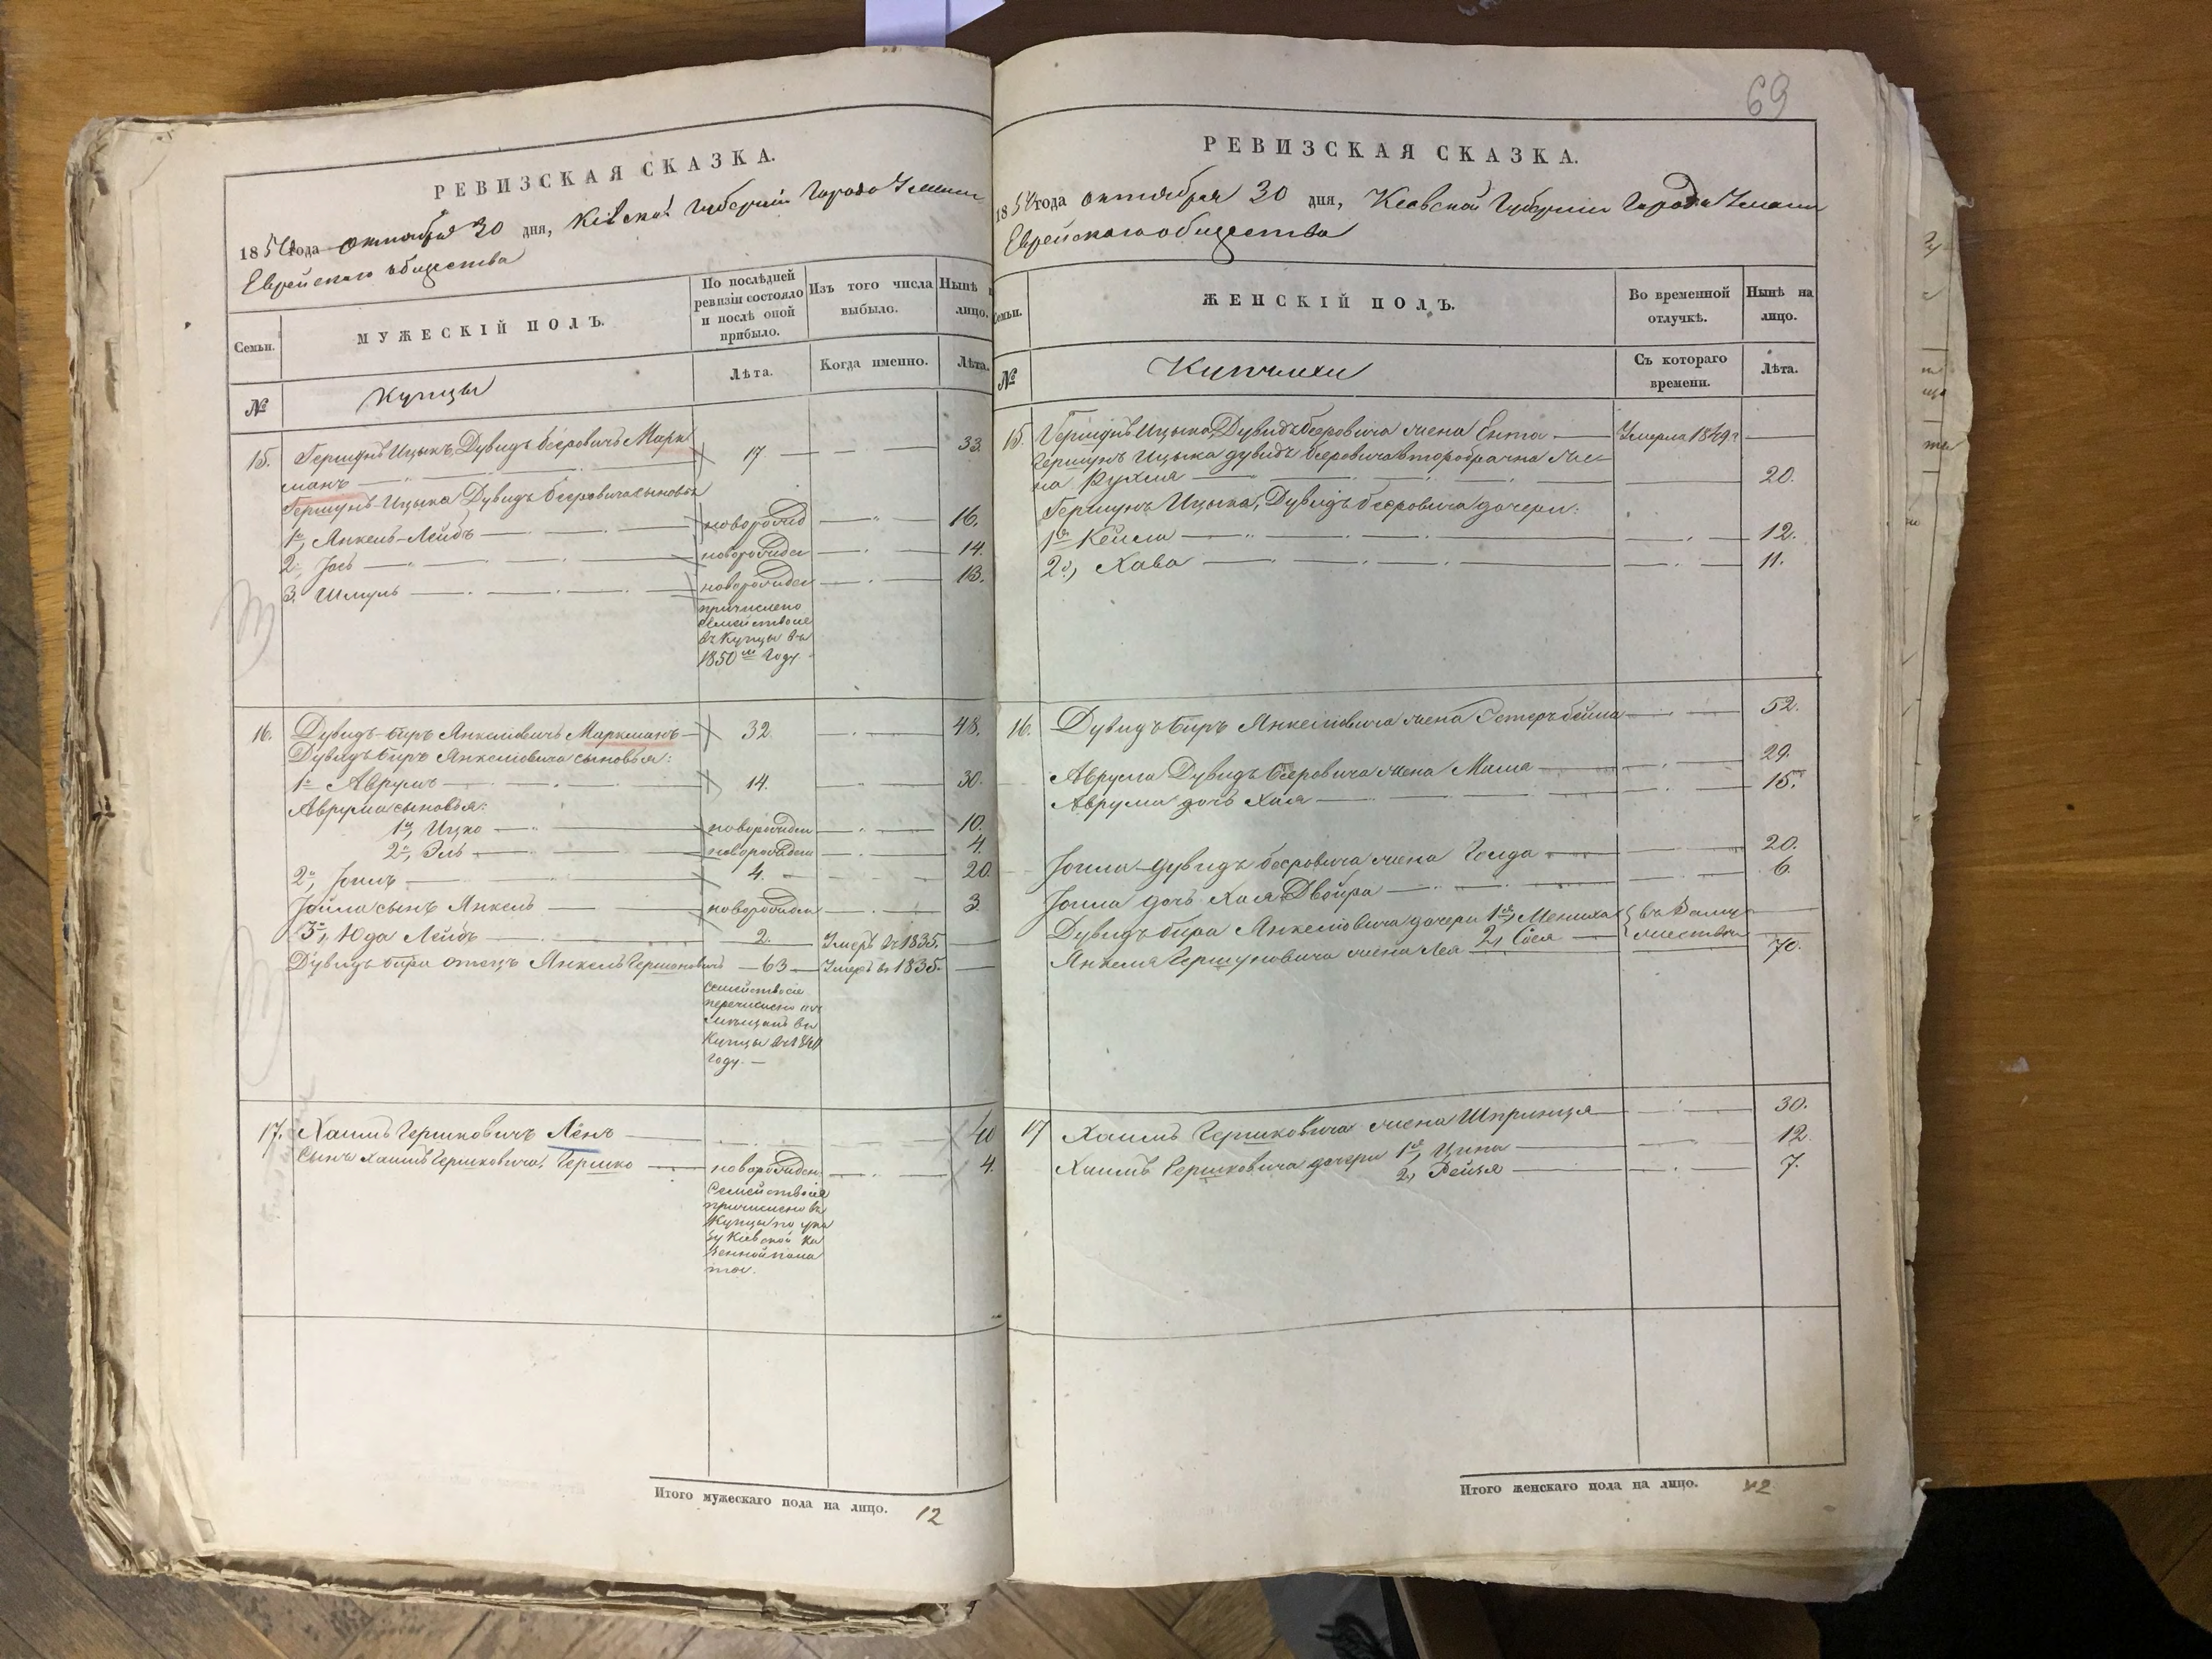 РЕВИЗСКАЯ СКАЗКА.
1850 года октября 30 дня, Кіевской Губерніи Города Умани
Еврейскаго общества
Семьи.
МУЖЕСКІЙ ПОЛЪ.
По послѣдней ревизіи состояло и послѣ оной прибыло.
Изъ того числа выбыло.
Нынѣ на лицо.
№
Купцы
Лѣта.
Когда именно.
Лѣта.
15. Гершунъ Ицыкъ, Дувидъ беровичъ Марк 17 33.
манъ
Гершунъ-Ицыка Дувидъ Бееровича сыновья
1й, Янкель-Лейбъ новорожд 16.
2. Іось новорожден 14.
3. Шмуль новорожден 13.
причислено
семейство сіе
въ Купцы въ
1850мъ Году
16. Дувидъ-биръ Янкелiовичъ Маркманъ 32. 48.
Дувидъ биръ Янкелiовича сыновья:
1й Аврумъ 14. 30.
Аврума сыновья:
1й, Ицко новорожден 10.
2й, Эль новорожден 4.
2й, Іоилъ 4. 20
Іойла сынъ Янкель новорожден 3
3й, Юда Лейбъ 2. Умеръ въ 1835.
Дувидъ-бира отецъ Янкель Гершоновичъ 63 Умеръ въ 1835.
Семейство сіе
перечислено изъ
мѣщанъ въ
Купцы въ
Году.
17. Хаимъ Гершковичъ Ленъ 40
Сынъ Хаимъ Гершковича, Гершко новорожден 4.
Семейство сіе
причислено въ
Купцы по ука
зу Кіевской ка
зенной пала
ты.
Итого мужескаго пола на лицо. 12
69
РЕВИЗСКАЯ СКАЗКА.
1850 года октября 30 дня, Кіевской Губерніи Города Умани
Еврейскаго общества
Семьи.
ЖЕНСКІЙ ПОЛЪ.
Во временной отлучкѣ.
Нынѣ на лицо.
№
Купчихи
Съ котораго времени.
Лѣта.
15. Гершунъ Ицыка, Дувидъ бееровича жена Ента Умерла 1849 г
Гершунъ Ицыка дувидъ бееровича второбрачна же-
на Рухля 20.
Гершунъ Ицыка, Дувидъ бееровича дочери:
1я Кейла 12.
2я, Хава 11.
16. Дувидъ биръ Янкелiовича жена Эстеръ бейла 52.
Аврума Дувидъ Бееровича жена Маша 29.
Аврума дочь Хая 15.
Іоила Дувидъ бееровича жена Голда 20.
Іоила дочь Хая Двойра 6.
Дувидъ бира Янкелiовича дочери 1я, Мениха въ Замуж
2, Сося жествѣ
Янкеля Гершуновича жена Леа 70.
17 Хаимъ Гершковича жена Шпринця 30.
Хаимъ Гершковича дочери 1я, Ципа 12.
2, Рейзя 7.
Итого женскаго пола на лицо. 12